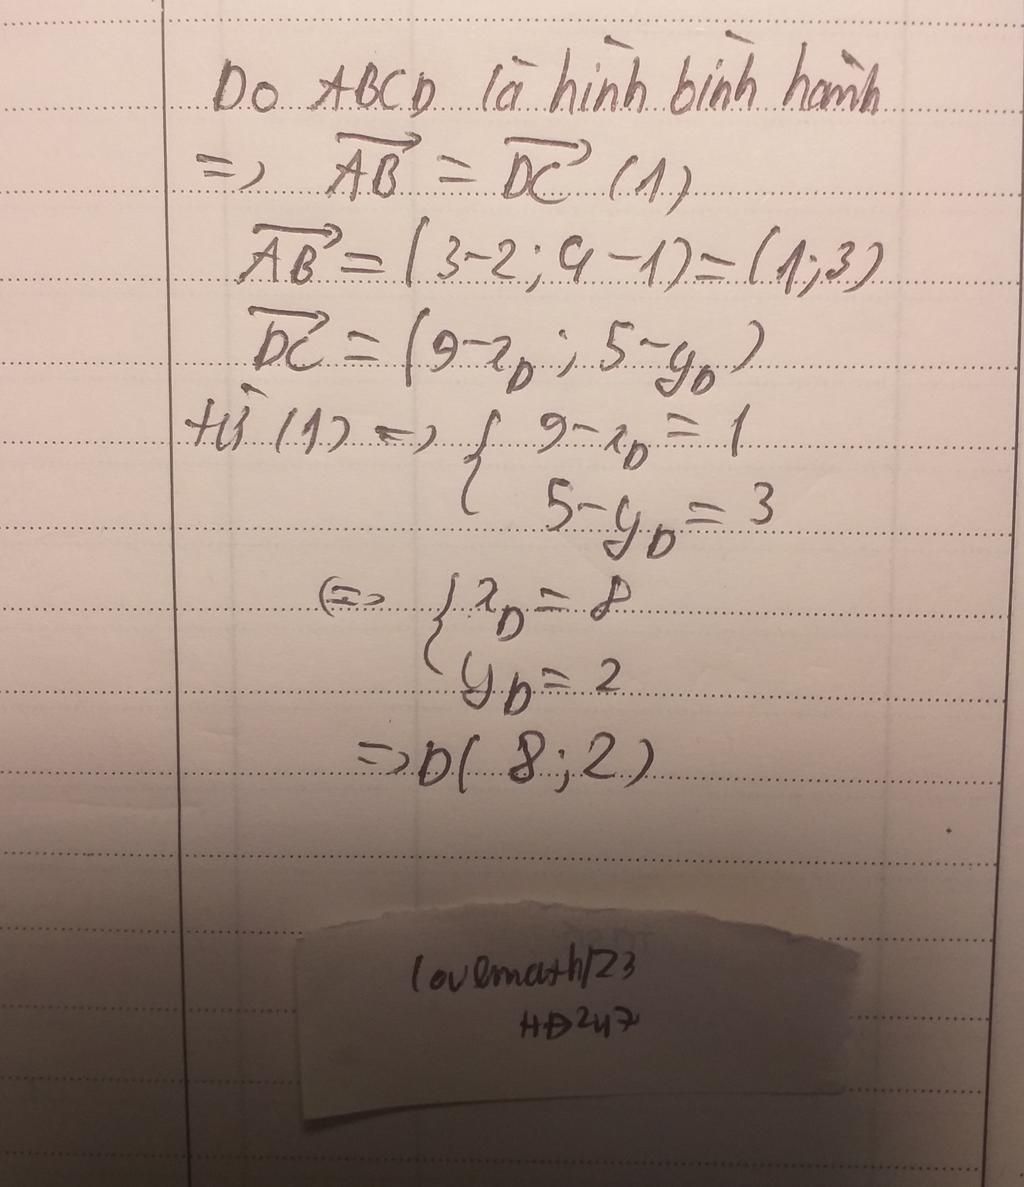 Do ABCD là hình bình hành
=> AB = DC (1)
AB = (3-2; 4-1) = (1; 3)
DC = (9-xD; 5-yD)
từ (1) => { 9-xD = 1
5-yD = 3
<=> { xD = 8
yD = 2
=> D( 8; 2)
lovemath123
HD247